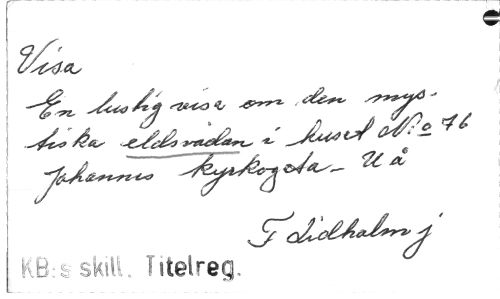 Visa
En lustig visa om den mys-
tiska eldsvådan i huset N:o 76
Johannis kyrkogata - U å
F Lidholm j
KB:s skill. Titelreg.